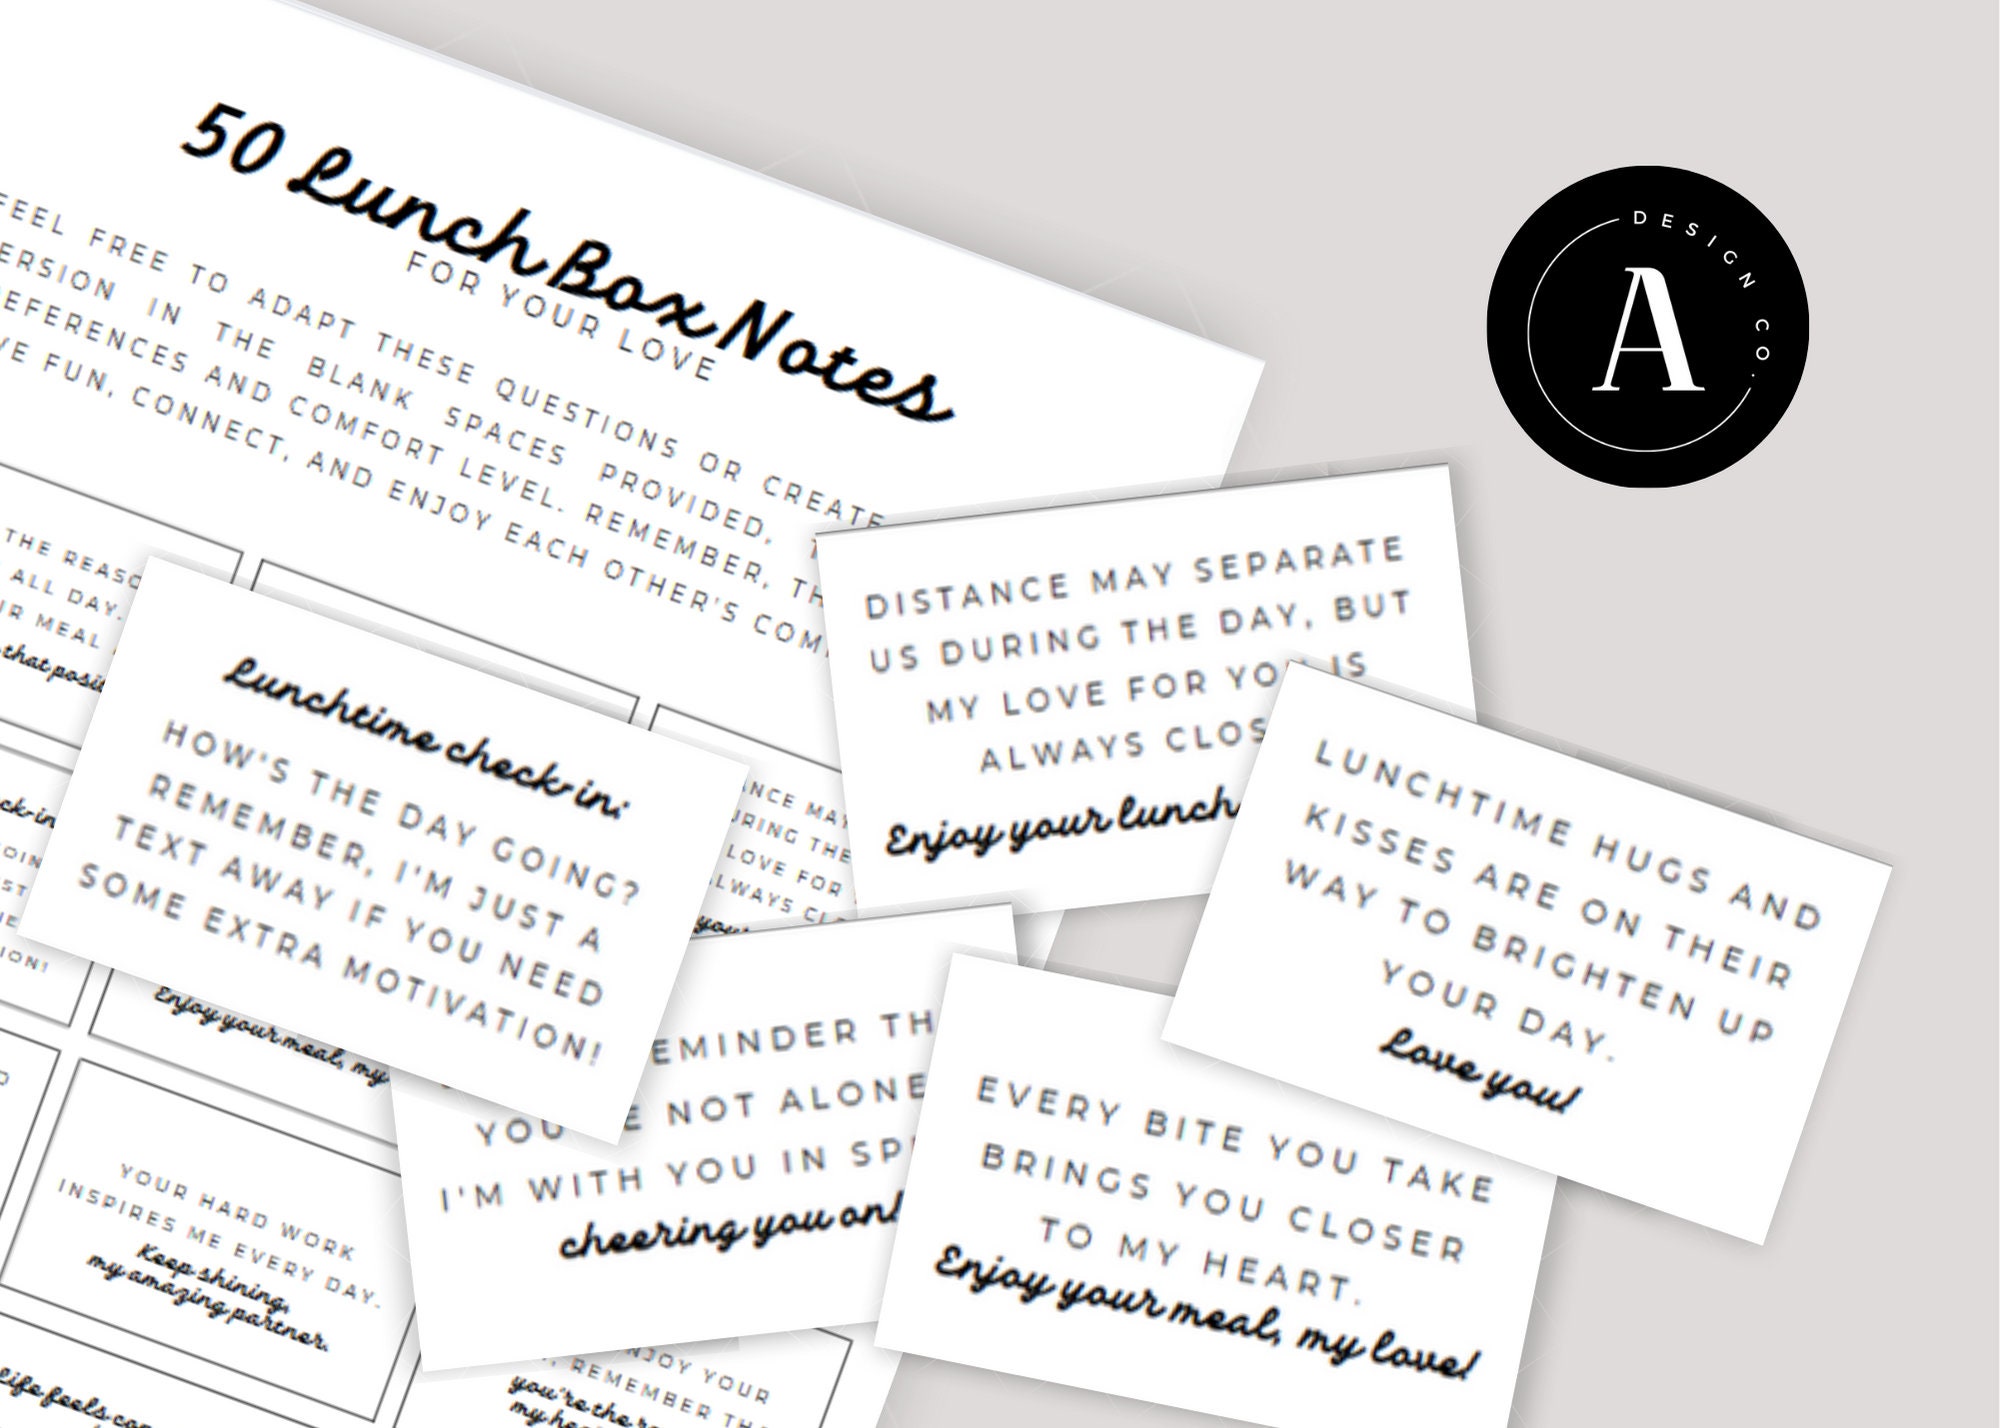 50 Lunch Box Notes
FOR YOUR LOVE
FEEL FREE TO ADAPT THESE QUESTIONS OR CREATE
IN THE BLANK SPACES PROVIDED,
AND COMFORT LEVEL. REMEMBER,
FUN, CONNECT, AND ENJOY EACH OTHER'S
DESIGN CO.
A
THE
ALL DAY.
MEAL
that
Lunchtime check-in:
HOW'S THE DAY GOING?
REMEMBER, I'M JUST A
TEXT AWAY IF YOU NEED
SOME EXTRA MOTIVATION!
DISTANCE MAY SEPARATE
US DURING THE DAY, BUT
MY LOVE FOR YOU IS
ALWAYS
Enjoy your lunch
LUNCHTIME HUGS AND
KISSES ARE ON THEIR
WAY TO BRIGHTEN UP
YOUR DAY.
Love you!
MAY
THE
LOVE FOR
Enjoy your meal, my
NOT ALONE
I'M WITH YOU IN
cheering you on!
EVERY BITE YOU TAKE
BRINGS YOU CLOSER
TO MY HEART.
Enjoy your meal, my love!
YOUR HARD WORK
INSPIRES ME EVERY DAY.
Keep shining,
my amazing partner.
YOUR
REMEMBER
you're the
my
Life feels